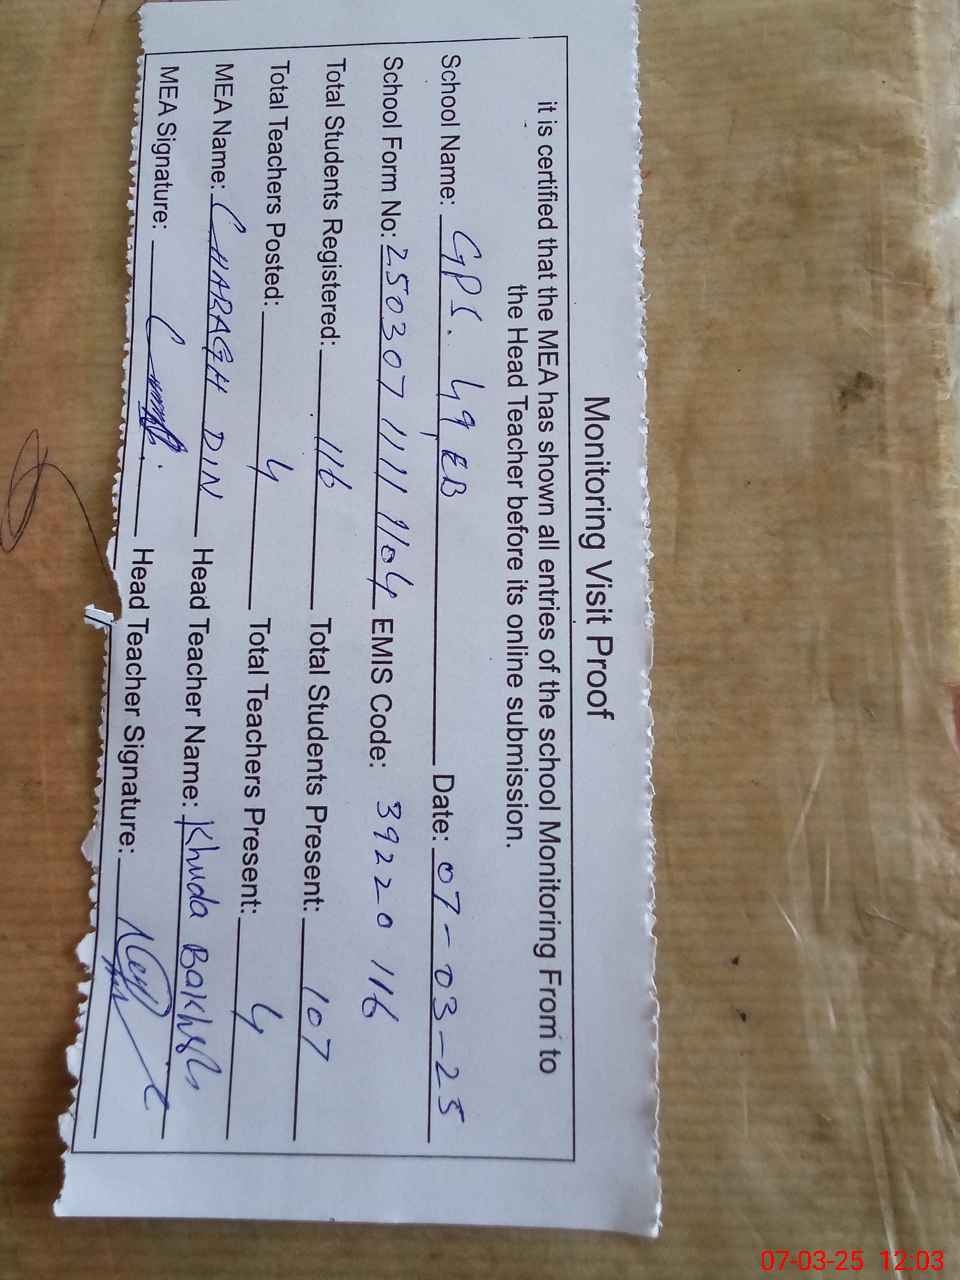 Monitoring Visit Proof
it is certified that the MEA has shown all entries of the school Monitoring From to
the Head Teacher before its online submission.
School Name: GPS. 49 EB Date: 07-03-25
School Form No: 250307 1111 1104 EMIS Code: 39220 116
Total Students Registered: 116 Total Students Present: 107
Total Teachers Posted: 4 Total Teachers Present: 4
MEA Name: CHARAGH DIN Head Teacher Name: Khuda Bakhsh
MEA Signature: Head Teacher Signature:
07-03-25 12:03